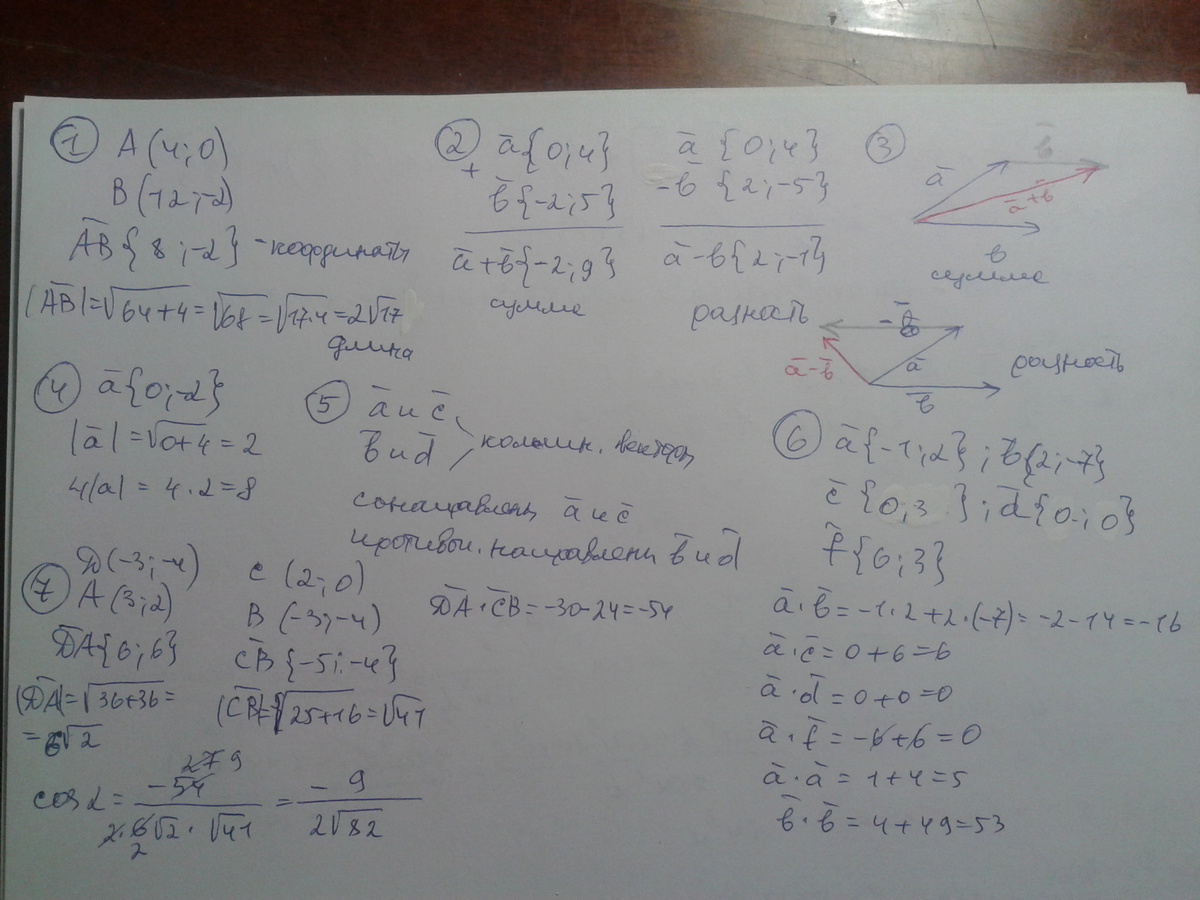 1
A (4; 0)
B (12; -2)
AB{8; -2} - координаты
|AB| = √64+4 = √68 = √17·4 = 2√17
длина
2
a{0; 4}
+
b{-2; 5}
a+b{-2; 9}
сумма
a {0; 4}
-b {2; -5}
a-b{2; -1}
разность
3
a
b
a+b
b
сумма
-b
a-b
a
b
разность
4
a{0; -2}
|a| = √0+4 = 2
4|a| = 4·2=8
5
a и c
b и d
коллин. векторы
сонаправлены a и c
противоп. направлены b и d
6
a{-1; 2}; b{2; -7}
c {0; 3}; d{0; 0}
f{6; 3}
a·b = -1·2+2·(-7) = -2-14=-16
a·c = 0+6=6
a·d = 0+0=0
a·f = -6+6=0
a·a = 1+4=5
b·b = 4+49=53
7
D(-3; -4)
A (3; 2)
DA{6; 6}
|DA| = √36+36 =
= 6√2
C (2; 0)
B (-3; -4)
CB {-5; -4}
|CB| = √25+16 = √41
DA·CB = -30-24=-54
27 9
cos α = -54 / 2·6√2·√41 = - 9 / 2√82
2